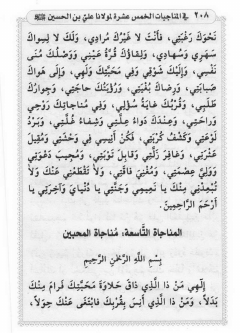 ٢٠٨ في المناجيات الخمس عشرة لمولانا علي بن الحسين
نَحْوَكَ رَغْبَتِي، فَأَنْتَ لَا غَيْرُكَ مُرَادِي، وَلَكَ لَا لِسِوَاكَ
سَهَرِي وَسُهَادِي، وَلِقَاؤُكَ قُرَّةُ عَيْنِي وَوَصْلُكَ مُنَى
نَفْسِي، وَإِلَيْكَ شَوْقِي وَفِي مَحَبَّتِكَ وَلَهِي، وَإِلَى هَوَاكَ
صَبَابَتِي، وَرِضَاكَ بُغْيَتِي، وَرُؤْيَتُكَ حَاجَتِي، وَجِوَارُكَ
طَلَبِي، وَقُرْبُكَ غَايَةُ سُؤْلِي، وَفِي مُنَاجَاتِكَ رَوْحِي
وَرَاحَتِي، وَعِنْدَكَ دَوَاءُ عِلَّتِي وَشِفَاءُ غُلَّتِي، وَبَرْدُ
لَوْعَتِي، وَكَشْفُ كُرْبَتِي، فَكُنْ أَنِيسِي فِي وَحْشَتِي وَمُقِيلَ
عَثْرَتِي، وَغَافِرَ زَلَّتِي وَقَابِلَ تَوْبَتِي، وَمُجِيبَ دَعْوَتِي
وَوَلِيَّ عِصْمَتِي، وَمُغْنِيَ فَاقَتِي، وَلَا تَقْطَعْنِي عَنْكَ وَلَا
تُبْعِدْنِي مِنْكَ يَا نَعِيمِي وَجَنَّتِي يَا دُنْيَايَ وَآخِرَتِي يَا
أَرْحَمَ الرَّاحِمِينَ.
المناجاة التاسعة: مناجاة المحبين
بِسْمِ اللَّهِ الرَّحْمَٰنِ الرَّحِيمِ
إِلَهِي مَنْ ذَا الَّذِي ذَاقَ حَلَاوَةَ مَحَبَّتِكَ فَرَامَ مِنْكَ
بَدَلًا، وَمَنْ ذَا الَّذِي أَنِسَ بِقُرْبِكَ فَابْتَغَى عَنْكَ حِوَلًا،